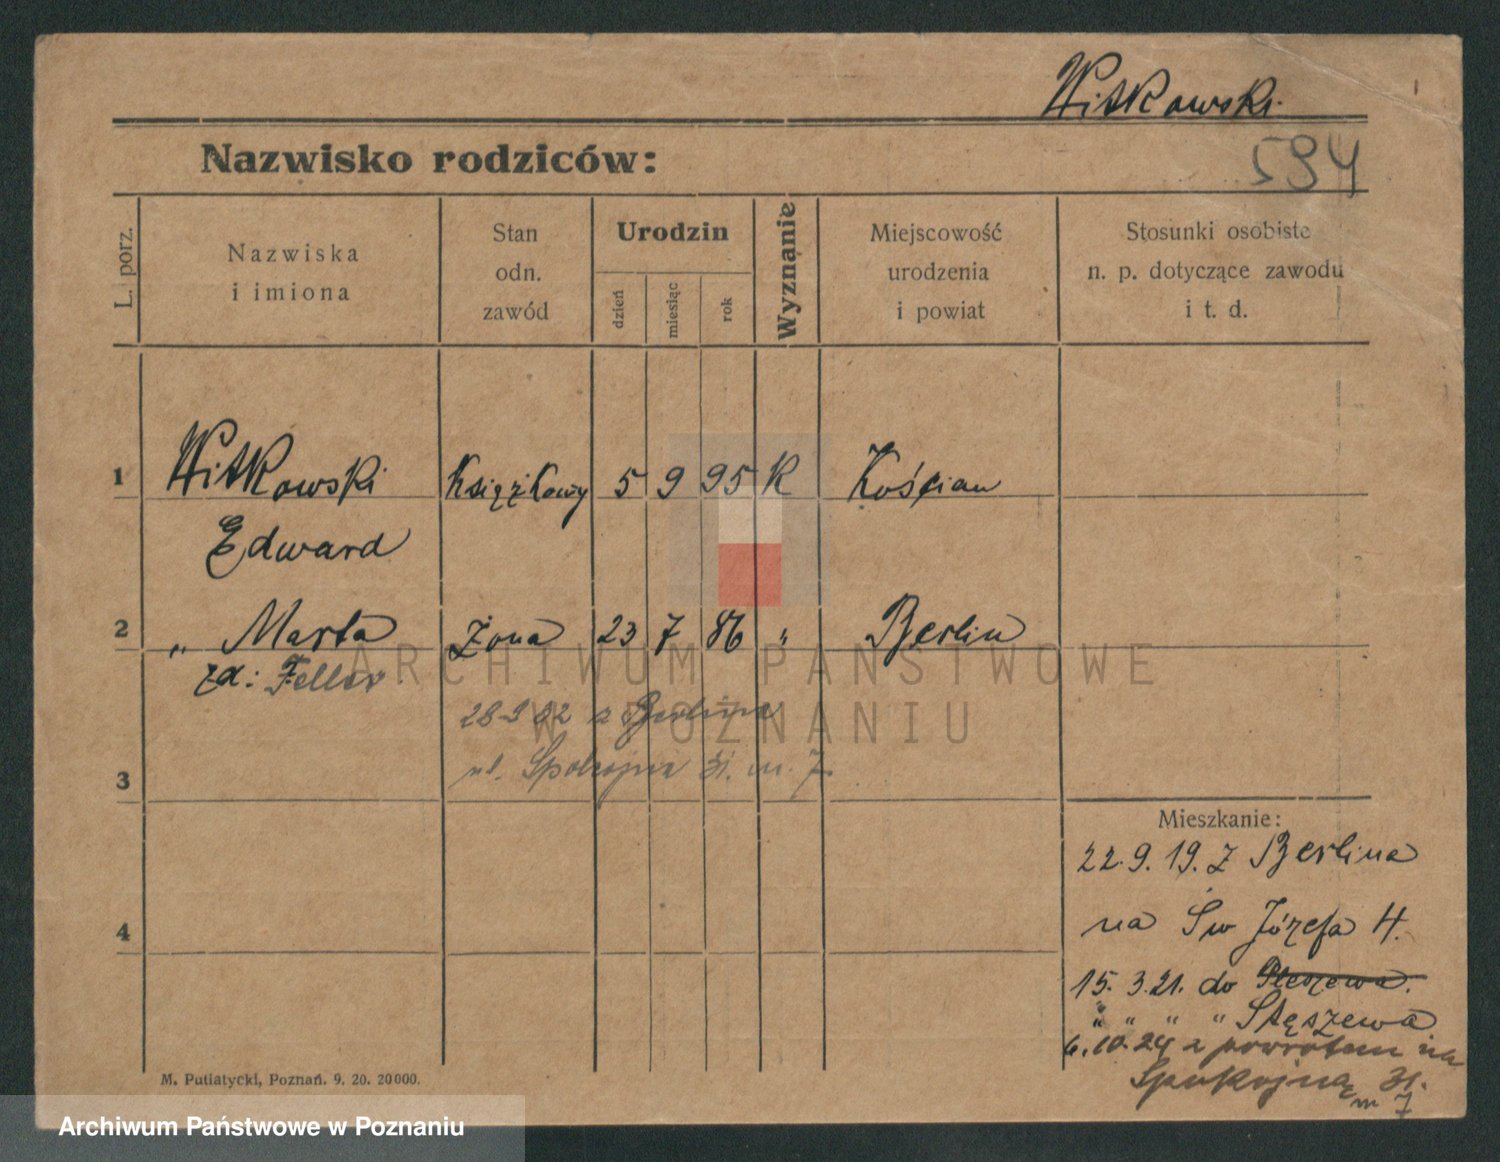 Witkowski
Nazwisko rodziców:
594
L. porz.
Nazwiska
i imiona
Stan
odn.
zawód
Urodzin
dzień
miesiąc
rok
Wyznanie
Miejscowość
urodzenia
i powiat
Stosunki osobiste
n. p. dotyczące zawodu
i t. d.
1 Witkowski Książkowy 5 9 95 K Kościan
Edward
2 „ Marta Żona 23 7 86 „ Berlin
zd: Feller
ARCHIWUM PAŃSTWOWE
W POZNANIU
z Berlina
ul. Spokojna 31. m. 7.
3
Mieszkanie:
22.9.19. z Berlina
na Św Józefa 4.
4
15. 3.21. do Pleszewa.
„ „ „ „ Stęszewa
6.10.24 z powrotem na
Spokojną 31.
m 7
M. Putiatycki, Poznań. 9. 20. 20000.
Archiwum Państwowe w Poznaniu